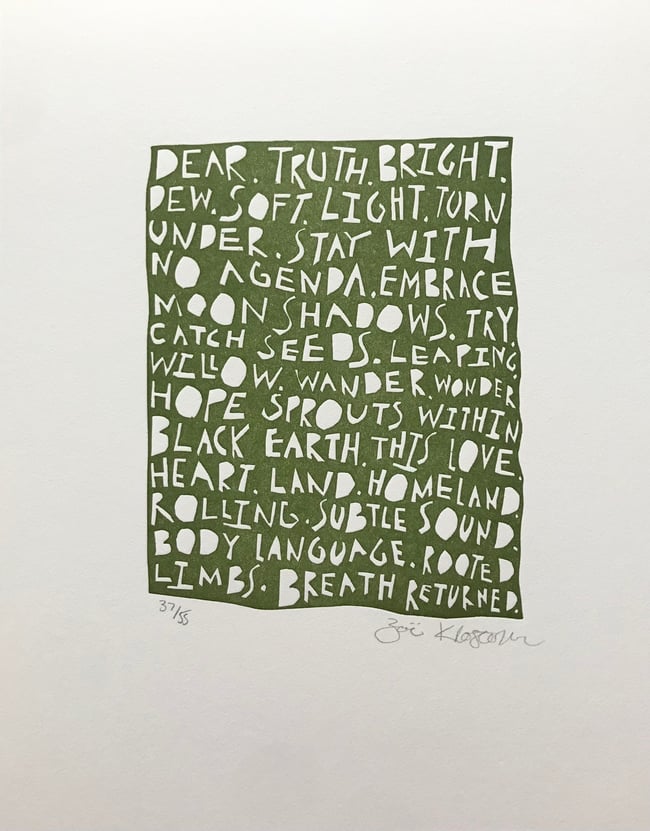 DEAR. TRUTH. BRIGHT.
DEW. SOFT. LIGHT. TURN
UNDER. STAY WITH
NO AGENDA. EMBRACE
MOON SHADOWS. TRY.
CATCH SEEDS. LEAPING
WILLOW. WANDER. WONDER
HOPE SPROUTS WITHIN
BLACK EARTH. THIS LOVE.
HEART. LAND. HOMELAND.
ROLLING. SUBTLE SOUND.
BODY LANGUAGE. ROOTED
LIMBS. BREATH RETURNED.
37/55 Zoë